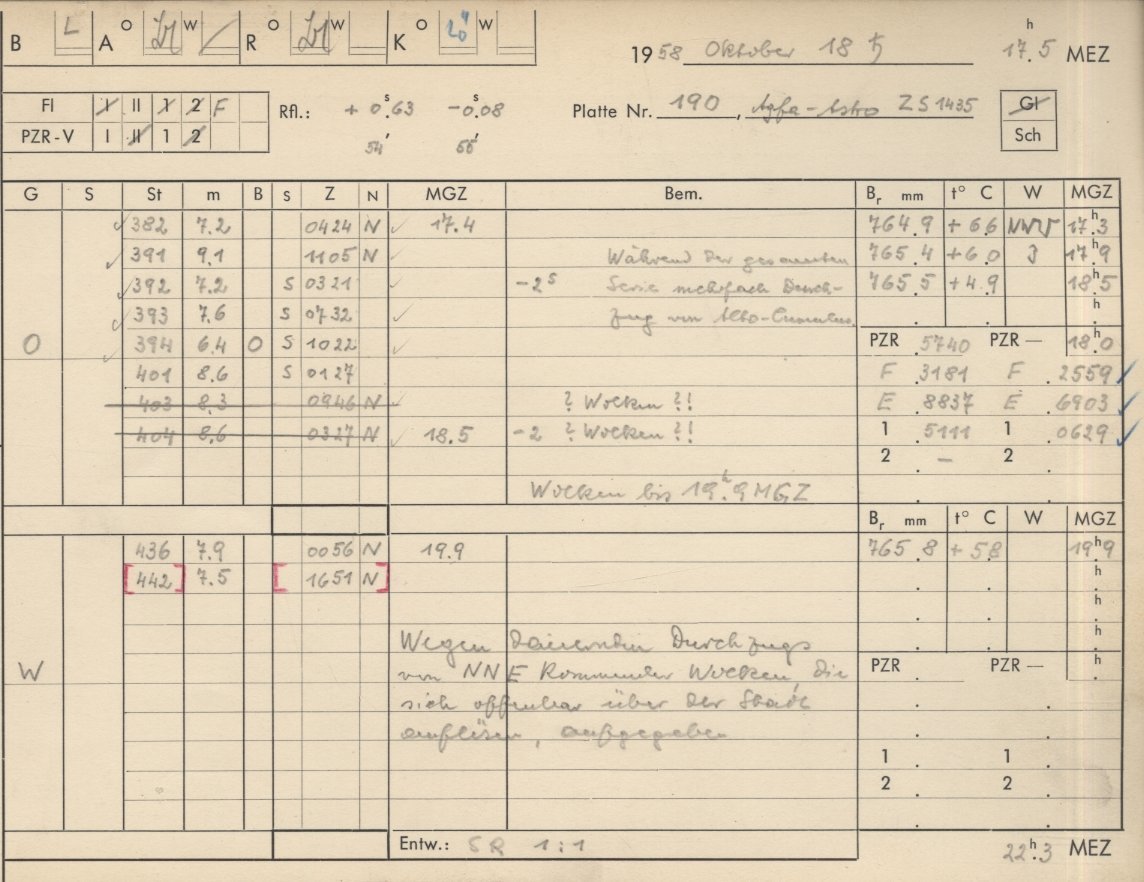 B L A O W R O W K O W
1958 Oktober 18 ♄ 17h.5 MEZ
FI I II 1 2 F
PZR-V I II 1 2
Rfl.: + 0s.63 -0s.08
54' 56'
Platte Nr. 190, Agfa-Astro ZS1435
GI
Sch
G S St m B S Z N MGZ Bem. Br mm t° C W MGZ
382 7.2 0424 N 17.4 764.9 +6.6 NNW 17h.3
391 9.1 1105 N Während der gesamten 765.4 +6.0 3 17h.9
392 7.2 S 0321 -2s Serie mehrfach Durch- 765.5 +4.9 18h.5
393 7.6 S 0732 zug von Alto-Cumulus. h
O 394 6.4 O S 1022 PZR .5740 PZR — 18h.0
401 8.6 S 0127 F .3181 F .2559
403 8.3 0946 N ? Wolken ?! E .8837 E .6903
404 8.6 0327 N 18.5 -2 ? Wolken ?! 1 .5111 1 .0629
2 . – 2 .
Wolken bis 19h.9 MGZ
Br mm t° C W MGZ
436 7.9 0056 N 19.9 765.8 +5.8 19h.9
[442] 7.5 [1651 N] h
h
Wegen dauernden Durchzugs h
W von NNE kommender Wolken, die PZR PZR — h
sich offenbar über der Stadt
auflösen, aufgegeben
1 1
2 2
Entw.: SR 1:1 22h.3 MEZ